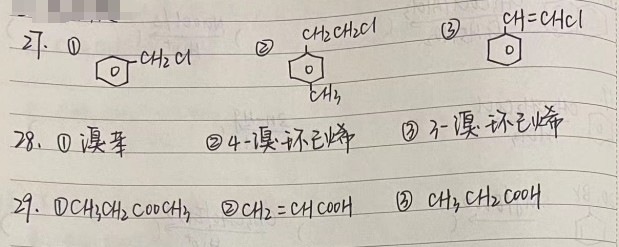 27. ① CH₂Cl ② CH₂CH₂Cl CH₃ ③ CH=CHCl
28. ① 溴苯 ② 4-溴环己烯 ③ 3-溴环己烯
29. ① CH₃CH₂COOCH₃ ② CH₂=CHCOOH ③ CH₃CH₂COOH